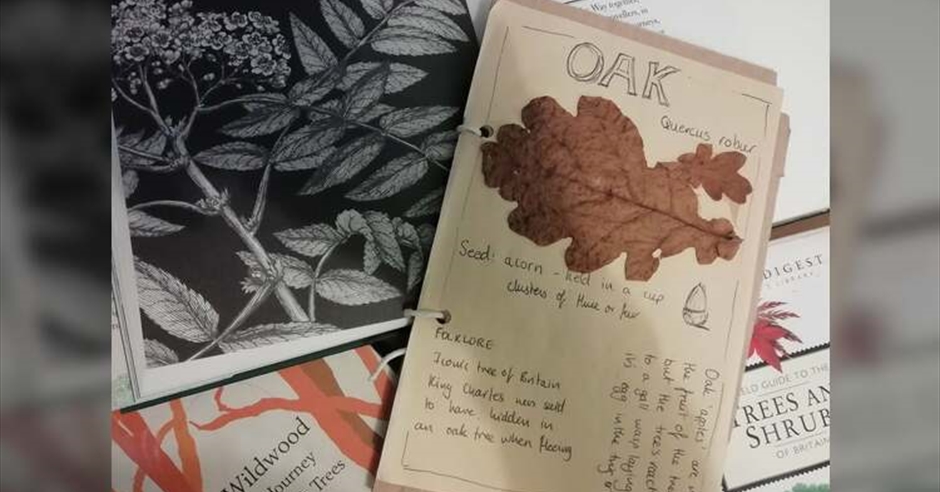 Way together,
OAK
Quercus robur
Seed: acorn - held in a cup
clusters of three or four
FOLKLORE
Iconic tree of Britain
King Charles was said
to have hidden in
an oak tree when fleeing
Oak 'apples' are
the fruit of the
but the trees
to a gall wasp laying
its egg in the
DIGEST
LIBRARY
FIELD GUIDE TO THE
TREES AN
SHRUB
OF BRITAIN
Wildwood
Journey
Trees